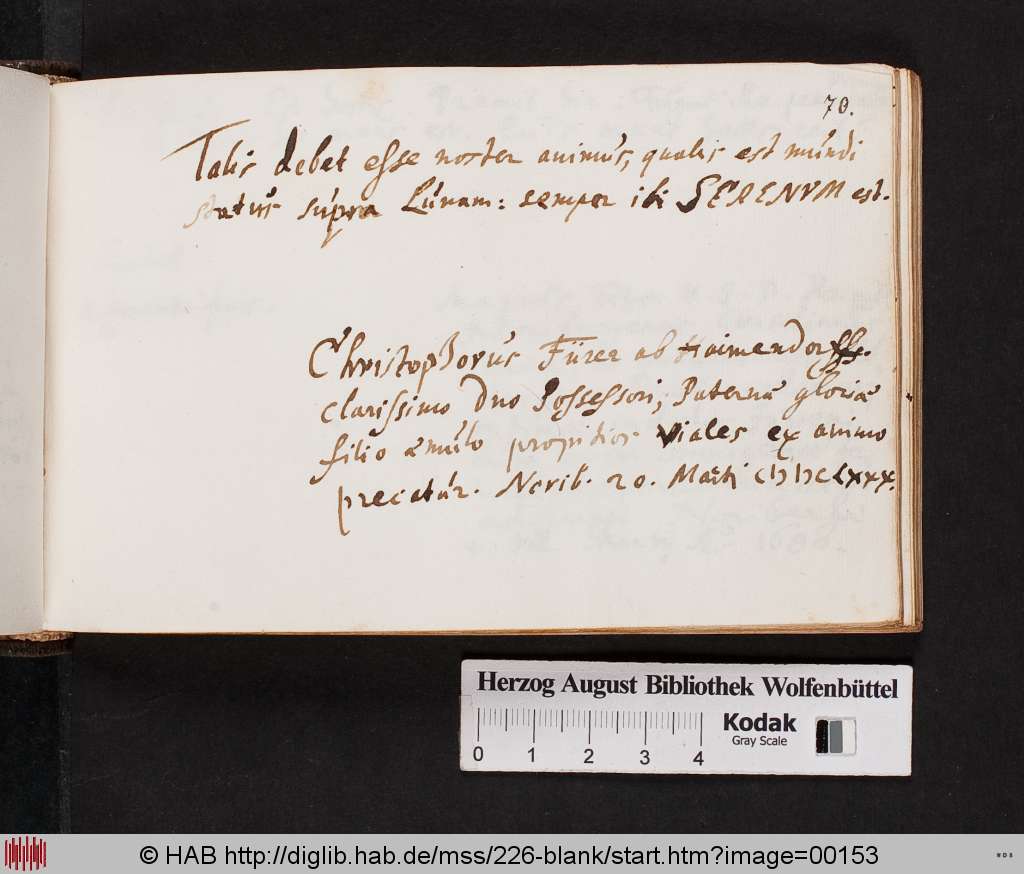 70.
Talis debet esse noster animus, qualis est mundi
status supra Lunam: semper ibi SERENVM est.
Christophorus Fürer ab Haimendorff.
clarissimo Dno Possessori, Paternæ gloriæ
filio æmulo propitios Viales ex animo
precatur. Norib. 20. Martii CIƆ IƆC LXXX.
Herzog August Bibliothek Wolfenbüttel
0 1 2 3 4
Kodak
Gray Scale
© HAB http://diglib.hab.de/mss/226-blank/start.htm?image=00153
WDB